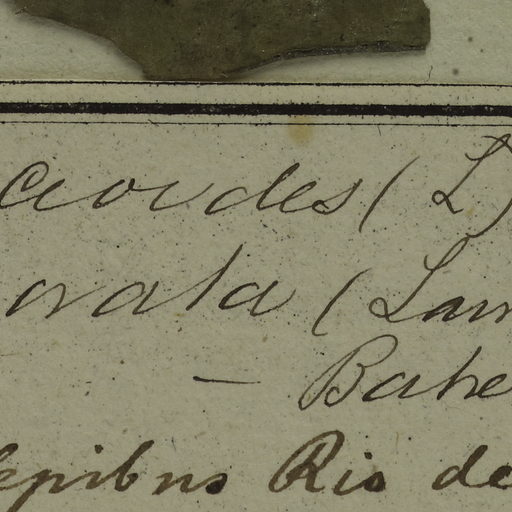 acioides (L)
ovata (Lam
— Bahe
lepibus Rio de